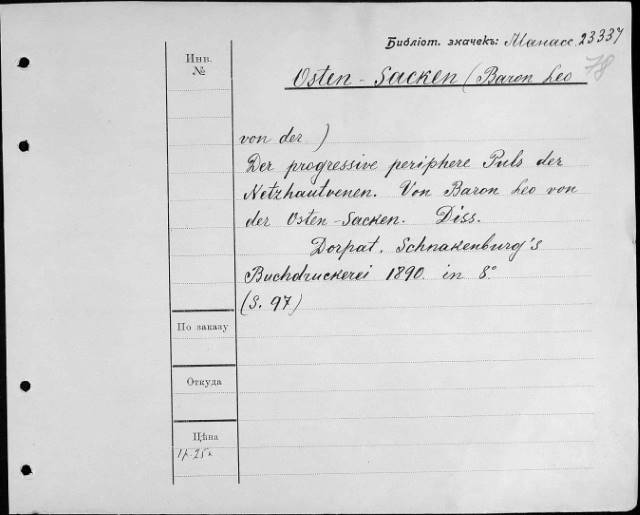 Библіот. значекъ: Манасс. 23337
78
Инв.
№
Osten-Sacken (Baron Leo
von der)
Der progressive periphere Puls der
Netzhautvenen. Von Baron Leo von
der Osten-Sacken. Diss.
Dorpat. Schnakenburg's
Buchdruckerei 1890. in 8°
(S. 97)
По заказу
Откуда
Цѣна